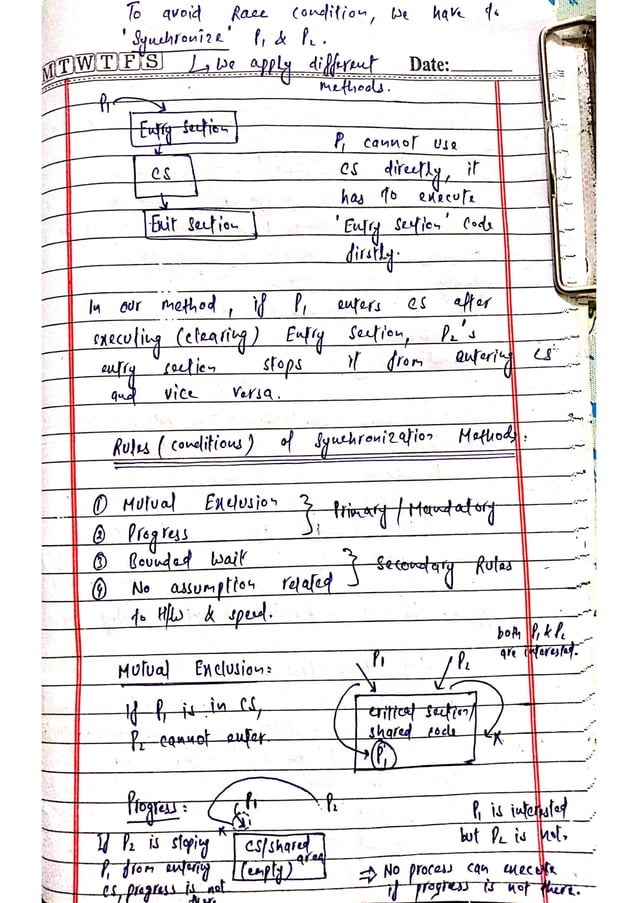 To avoid Race condition, we have to
'Synchronize' P1 & P2.
M T W T F S
↳ we apply different
methods.
Date:
P1
Entry Section
CS
Exit Section
P1 cannot use
CS directly, it
has to execute
'Entry Section' Code
firstly.
In our method, if P1 enters CS after
executing (clearing) Entry Section, P2's
entry section stops it from entering CS
and vice versa.
Rules (conditions) of Synchronization Methods:
① Mutual Exclusion
② Progress
} Primary / Mandatory
③ Bounded wait
④ No assumption related
to H/W & speed.
} Secondary Rules
both P1 & P2
are interested.
Mutual Exclusion:
If P1 is in CS,
P2 cannot enter.
P1
P2
critical section/
shared code
P1
x
Progress:
If P2 is stoping
P1 from entering
CS, progress is not
P1
P2
x
CS/shared
area
(empty)
P1 is interested
but P2 is not.
⇒ No process can execute
if progress is not there.